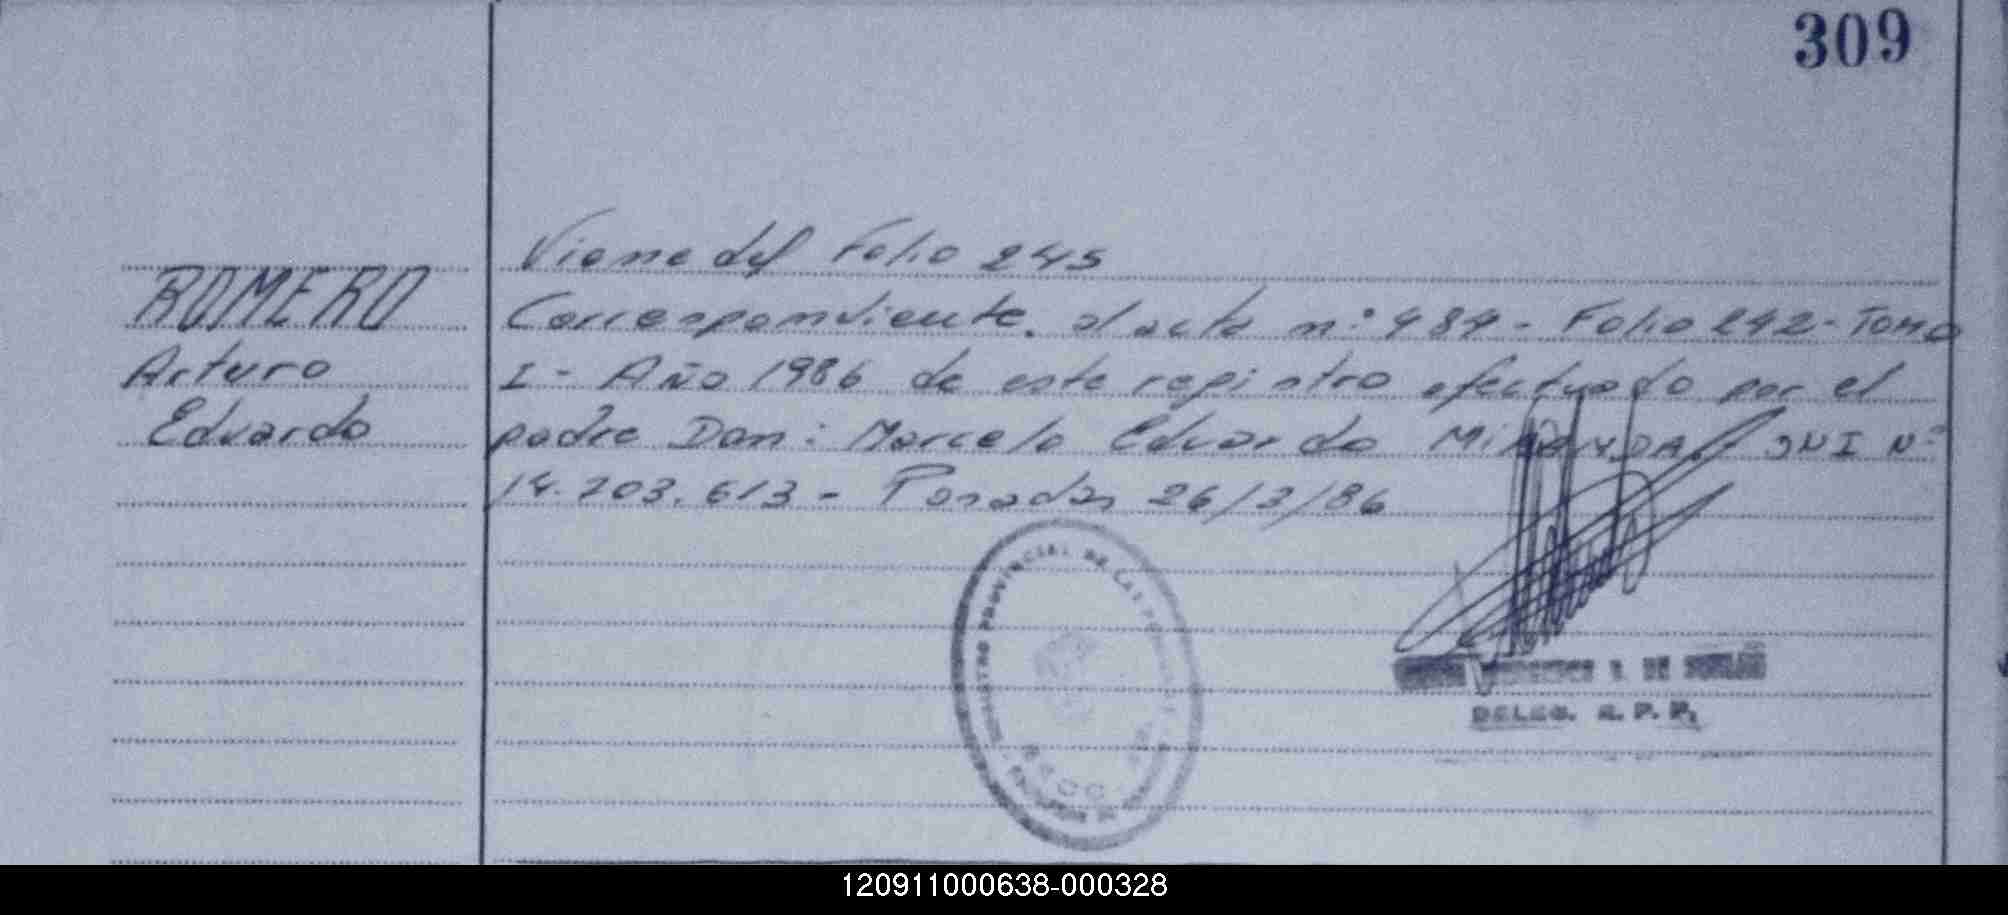 309
Viene del Folio 245
ROMERO
Correspondiente. al acta nº 484 - Folio 242 - Tomo
Arturo
I - Año 1986 de este registro efectuado por el
Eduardo
padre Don: Marcelo Eduardo MiRANDA. DNI Nº
14.203.613 - Posadas 26/3/86
REGISTRO PROVINCIAL DE LAS PERSONAS
DE
DELEG. R. P. P.
120911000638-000328